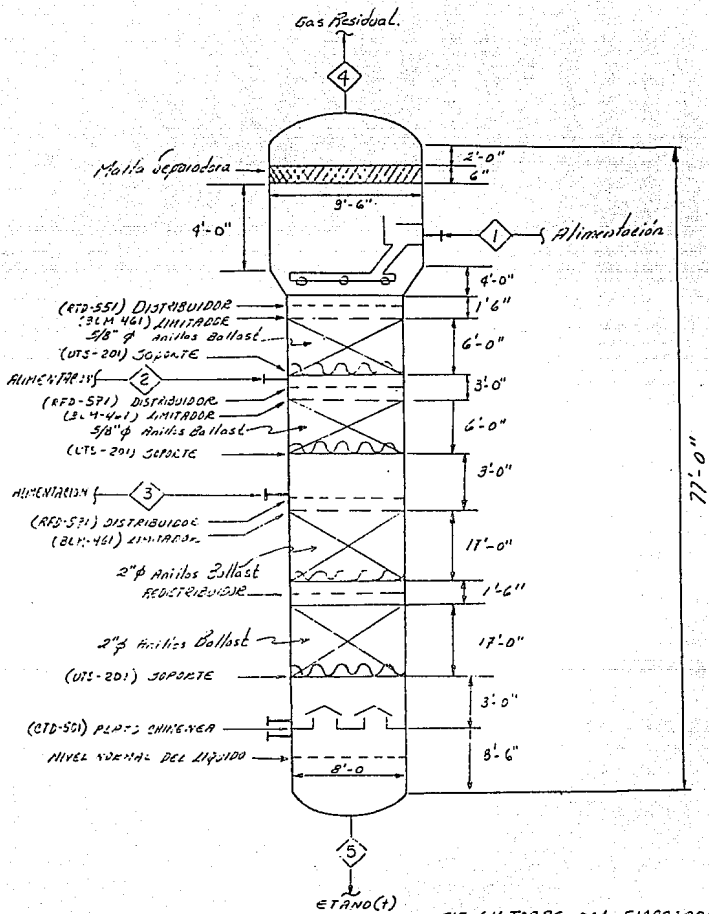 Gas Residual.
4
Malla Separadora
2'-0"
6"
9'-6"
4'-0"
1
Alimentación
4'-0"
(RTD-551) DISTRIBUIDOR
1'6"
(BLM-461) LIMITADOR
5/8" φ Anillos Ballast
6'-0"
(UTS-201) SOPORTE
ALIMENTACION
2
3'-0"
(RFD-571) DISTRIBUIDOR
(BLM-461) LIMITADOR
5/8" φ Anillos Ballast
6'-0"
(UTS-201) SOPORTE
3'-0"
77'-0"
ALIMENTACION
3
(RFD-571) DISTRIBUIDOR
(BLM-461) LIMITADOR
17'-0"
2" φ Anillos Ballast
REDISTRIBUIDOR
1'-6"
2" φ Anillos Ballast
17'-0"
(UTS-201) SOPORTE
3'-0"
(CTD-501) PLATO CHIMENEA
NIVEL NORMAL DEL LIQUIDO
8'-6"
8'-0
5
ETANO(+)